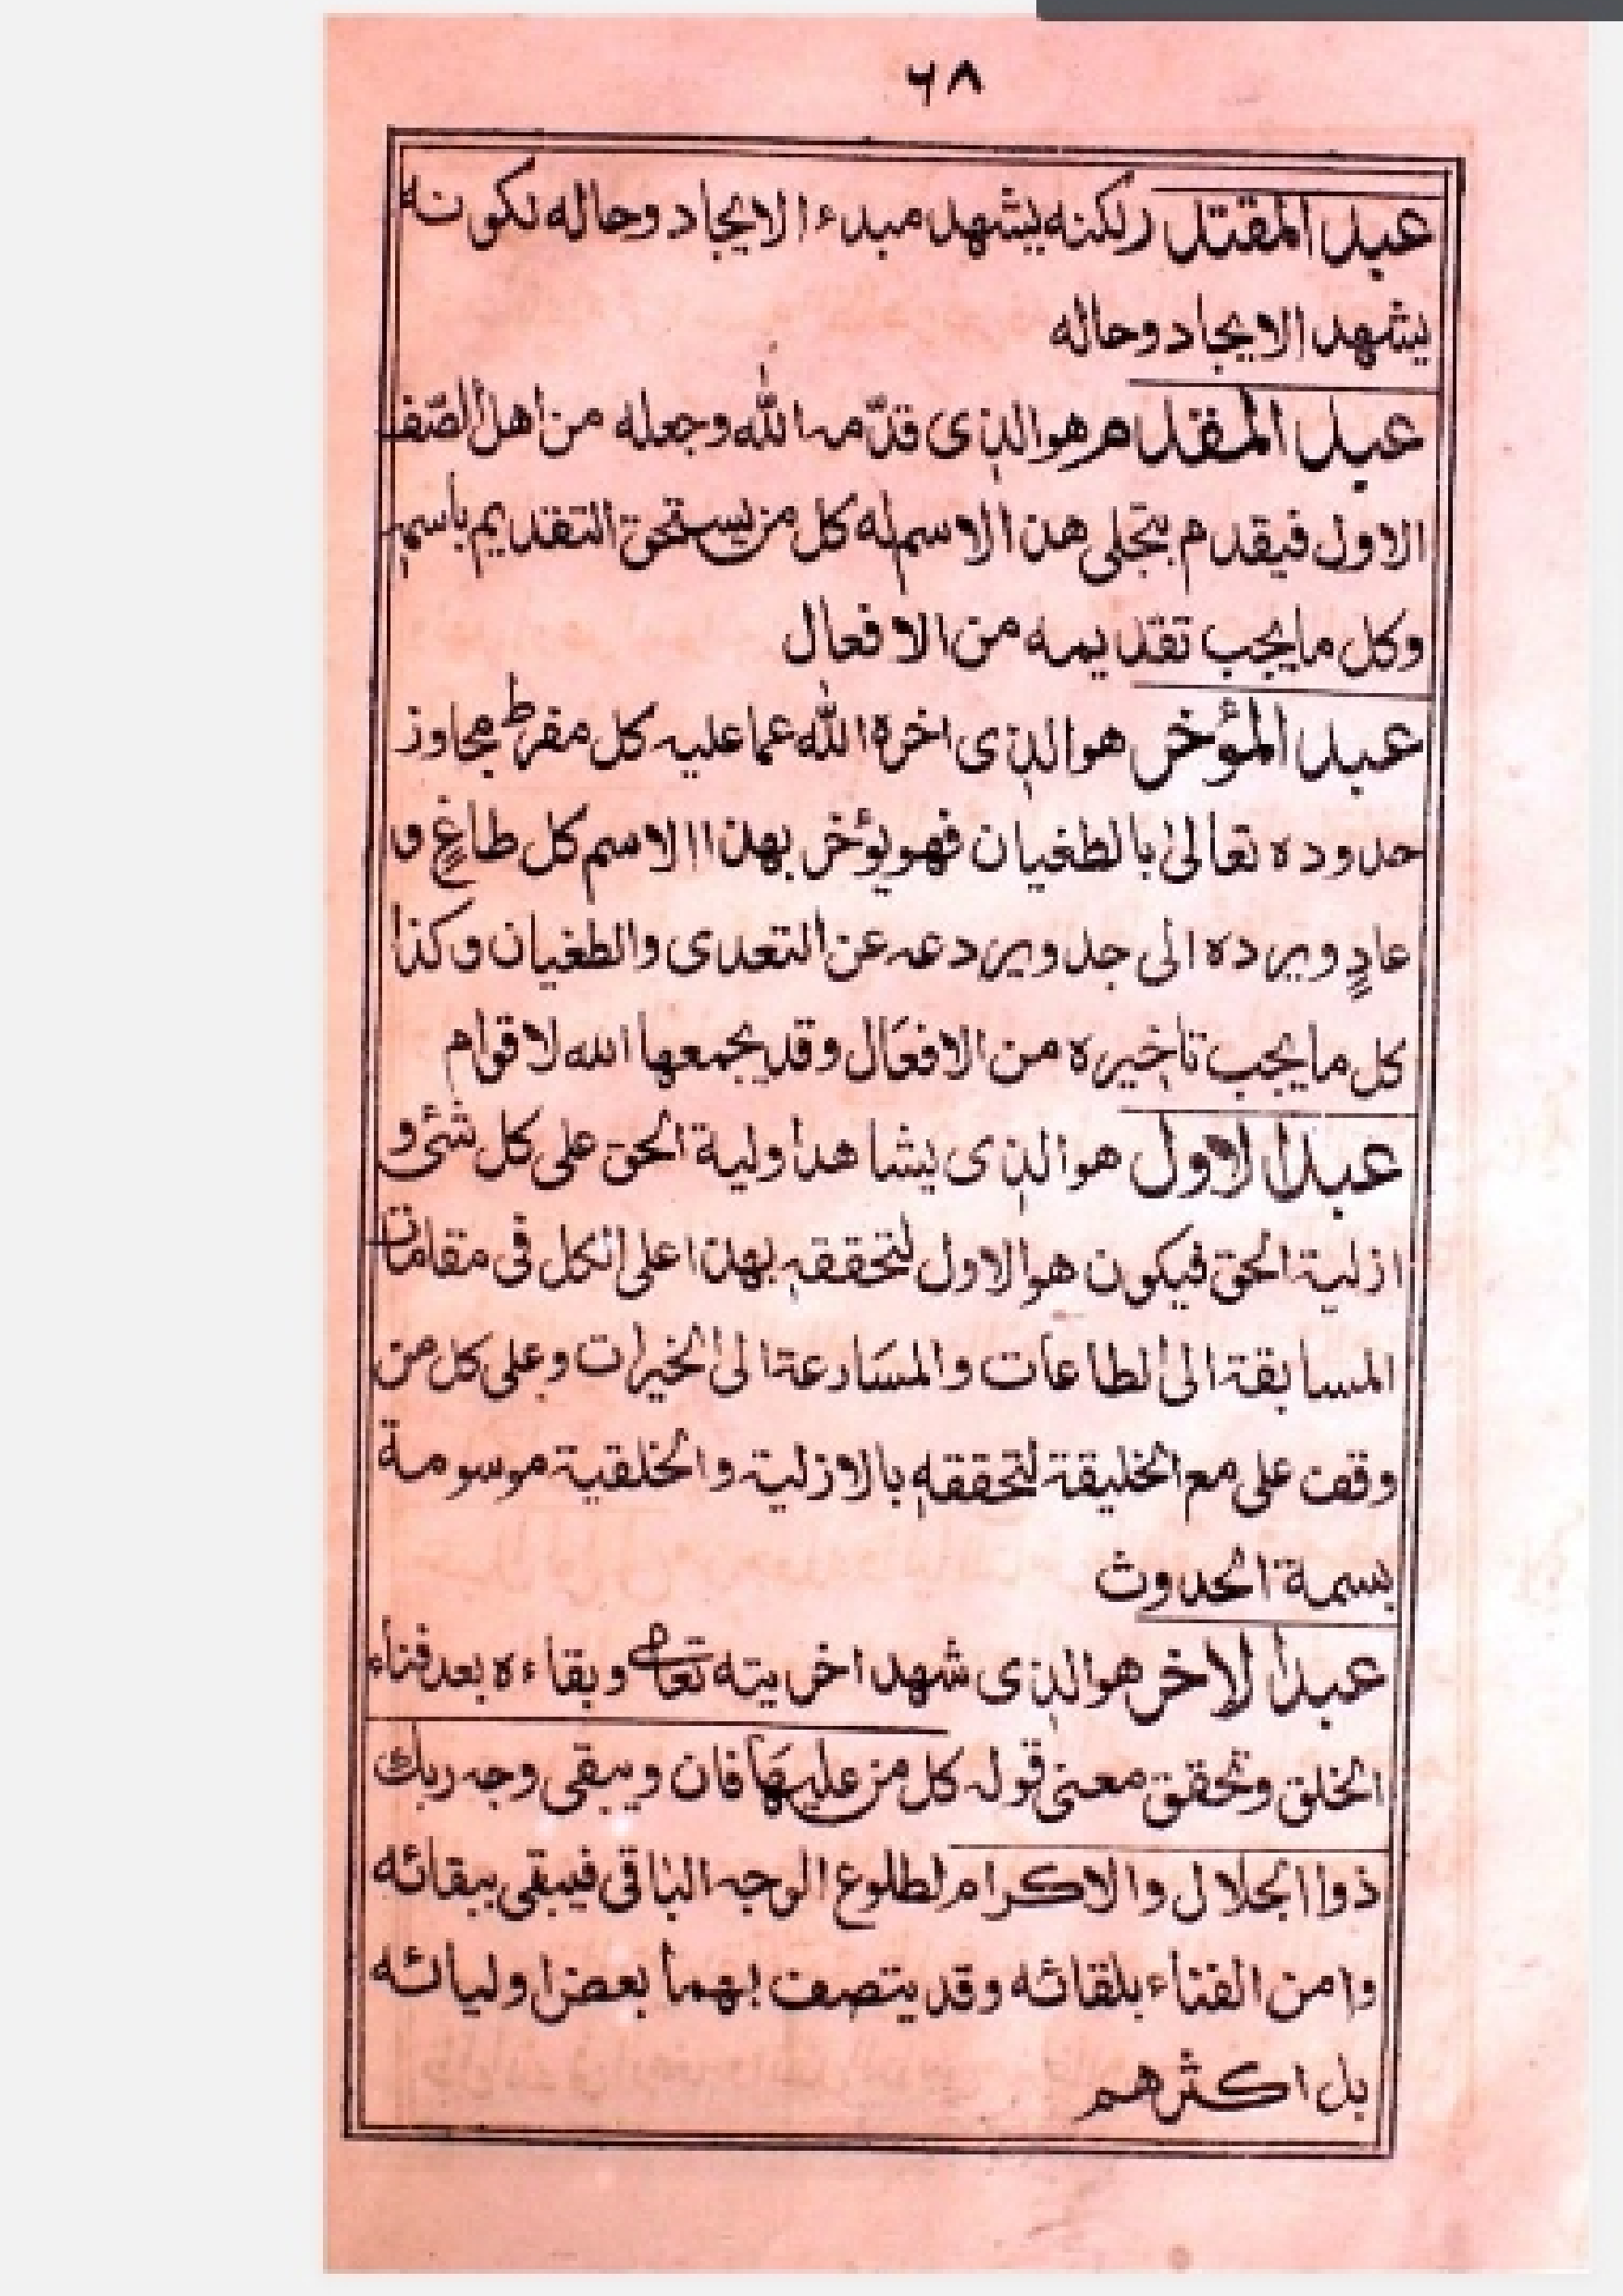 ٦٨
عبد المقتدر لكنه يشهد مبدء الايجاد وحاله لكونه
يشهد الايجاد وحاله
عبد المقدم هو الذى قدّمه الله وجعله من اهل الصّف
الاول فيقدم بتجلى هذا الاسم له كل من يستحق التقديم باسمه
وكل ما يجب تقديمه من الافعال
عبد المؤخر هو الذى اخره الله عما عليه كل مفرط مجاوز
حدوده تعالىٰ بالطغيان فهو يؤخر بهذا الاسم كل طاغٍ و
عادٍ ويرده الى جد ويردعه عن التعدى والطغيان وكذا
كل ما يجب تاخيره من الافعال وقد يجمعها الله لاقوام
عبد الاول هو الذى يشاهد اولية الحق على كل شئ و
ازلية الحق فيكون هو الاول لتحققه بهذا على الكل فى مقامات
المسابقة الى الطاعات والمسارعة الى الخيرات وعلى كل من
وقف على مع الخليقة لتحققه بالازلية والخلقية موسومة
بسمة الحدوث
عبد الاخر هو الذى شهد اخريته تعالى وبقاءه بعد فناء
الخلق وتحقق معنى قوله كل من عليها فان ويبقى وجه ربك
ذوا الجلال والاكرام لطلوع الوجه الباقى فيبقى ببقائه
وامن الفناء بلقائه وقد يتصف بهما بعض اوليائه
بل اكثرهم